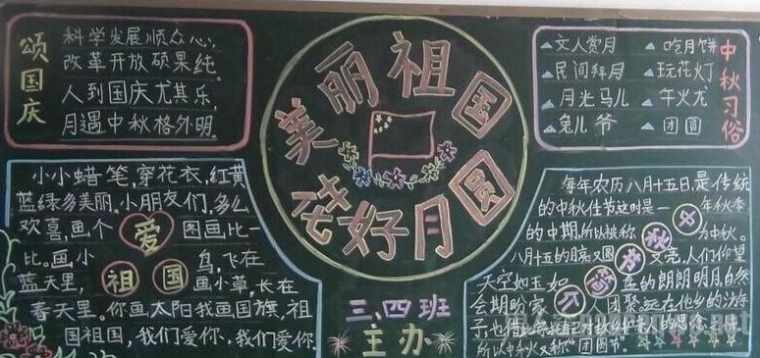 颂国庆
科学发展顺众心,
改革开放硕果纯。
人到国庆尤其乐,
月遇中秋格外明。
美丽祖国
花好月圆
中秋习俗
文人赏月
吃月饼
民间拜月
玩花灯
月光马儿
兔儿爷
团圆
小小蜡笔,穿花衣,红黄
蓝绿多美丽,小朋友们,多么
欢喜,画个 爱 图画比一
比。画小 鸟,飞在
蓝天里, 祖国 画小草,长在
春天里。你画太阳我画国旗,祖
国祖国,我们爱你,我们爱你
三、四班
主办
每年农历八月十五日,是传统
的中秋佳节这时是一 年秋季
的中期所以被称 为中秋。
八月十五的 人们仰望
天空如玉如 的朗朗明月,自然
会期盼家 团聚远在他乡的
所以中秋又称“团圆节”